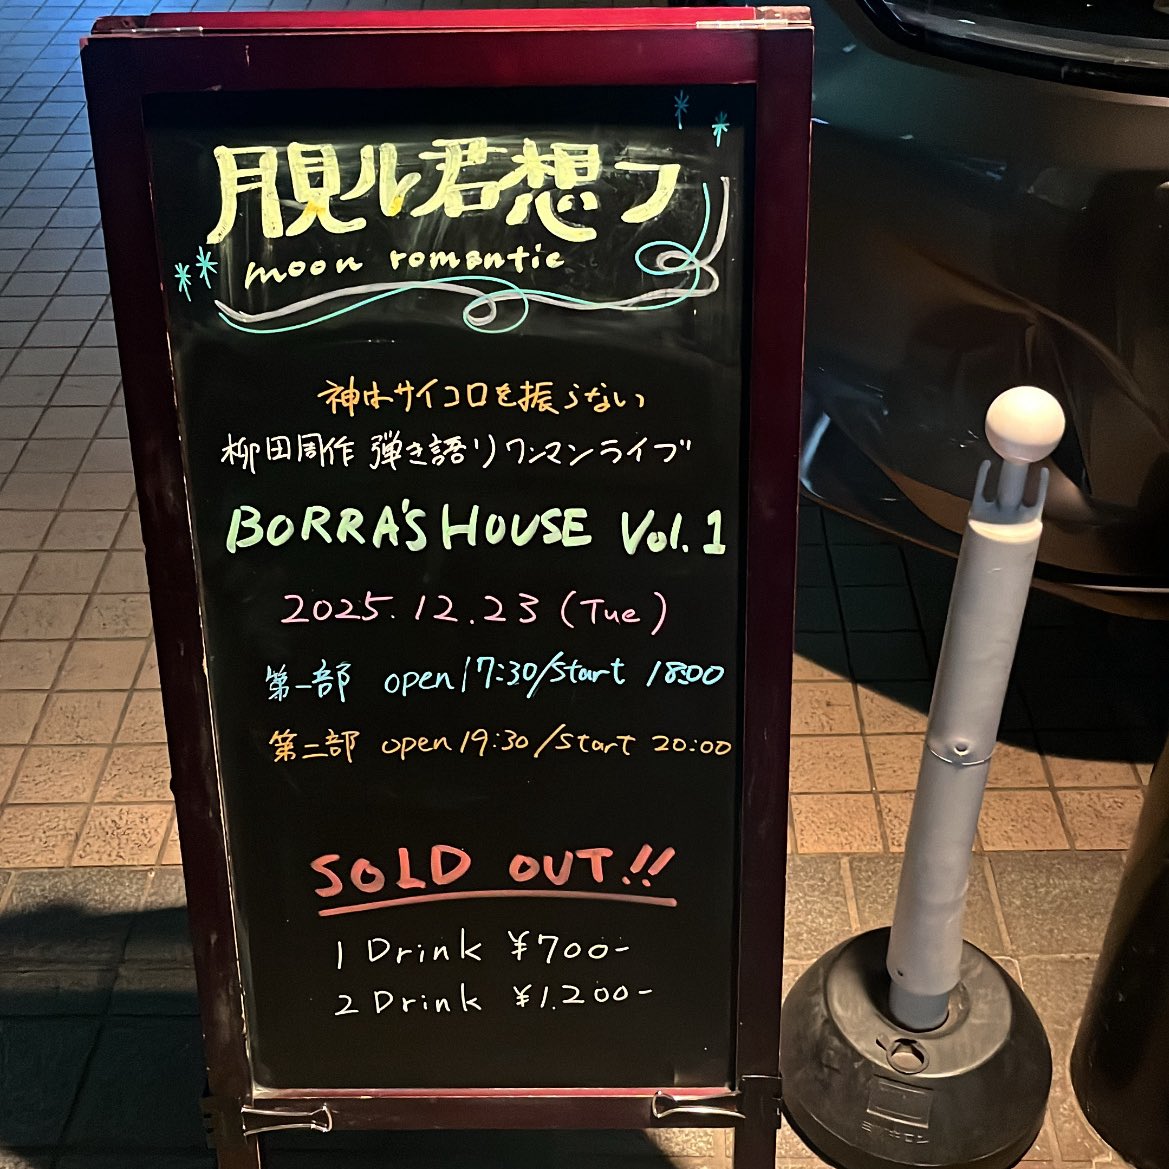 月見ル君想フ
moon romantic
神はサイコロを振らない
柳田周作 弾き語りワンマンライブ
BORRA'S HOUSE Vol.1
2025.12.23 (Tue)
第一部 open 17:30/start 18:00
第二部 open 19:30/start 20:00
SOLD OUT!!
1 Drink ¥700-
2 Drink ¥1.200-